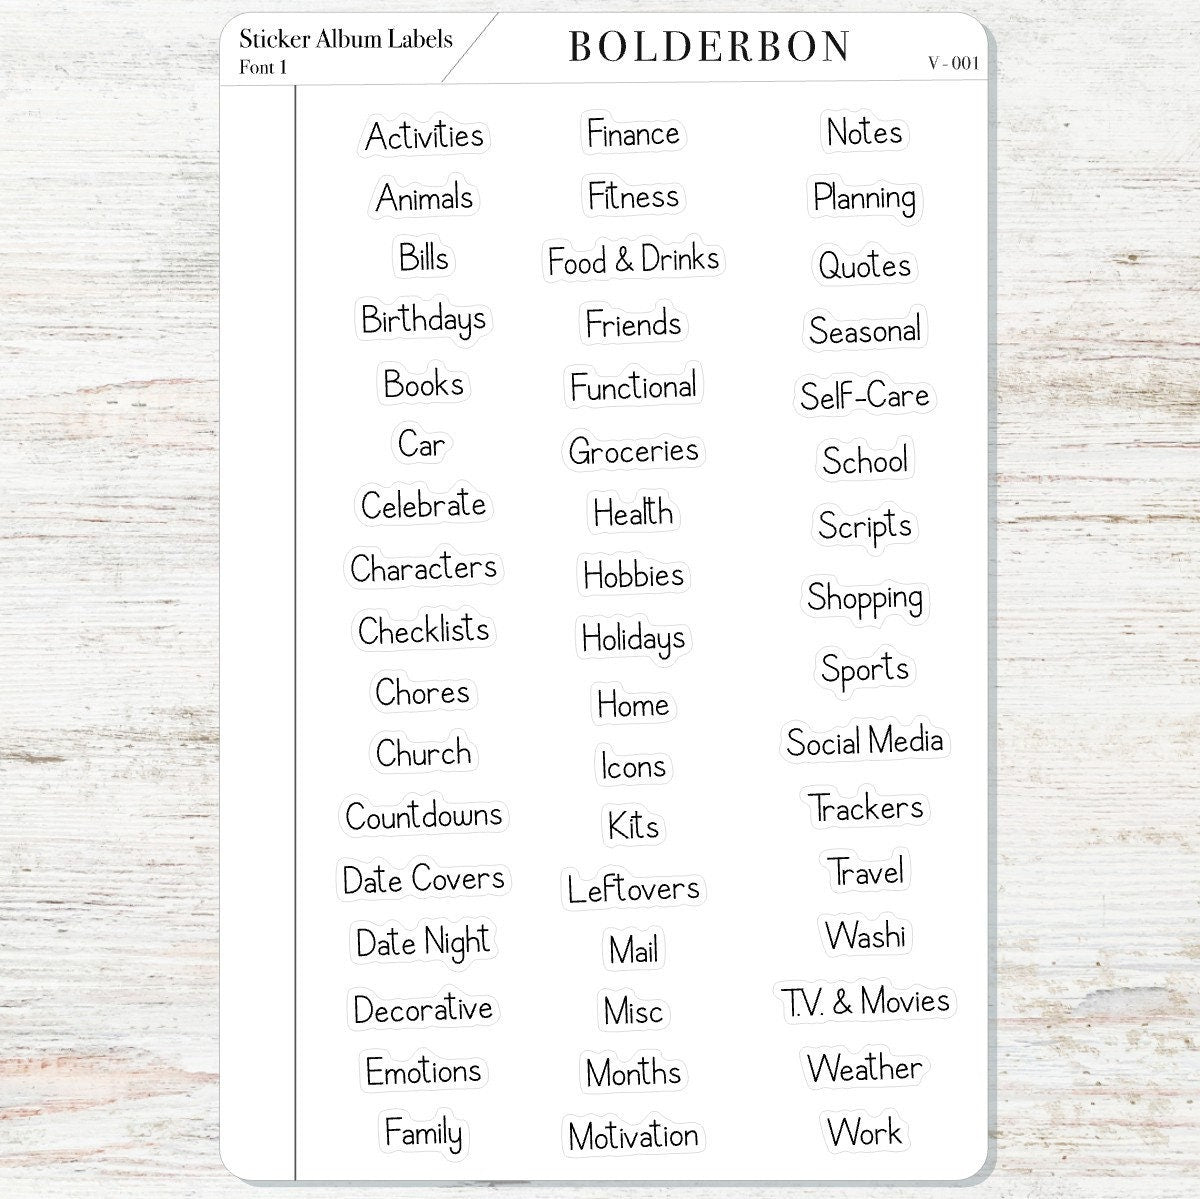 Sticker Album Labels
Font 1
BOLDERBON
V - 001
Activities
Animals
Bills
Birthdays
Books
Car
Celebrate
Characters
Checklists
Chores
Church
Countdowns
Date Covers
Date Night
Decorative
Emotions
Family
Finance
Fitness
Food & Drinks
Friends
Functional
Groceries
Health
Hobbies
Holidays
Home
Icons
Kits
Leftovers
Mail
Misc
Months
Motivation
Notes
Planning
Quotes
Seasonal
Self-Care
School
Scripts
Shopping
Sports
Social Media
Trackers
Travel
Washi
T.V. & Movies
Weather
Work